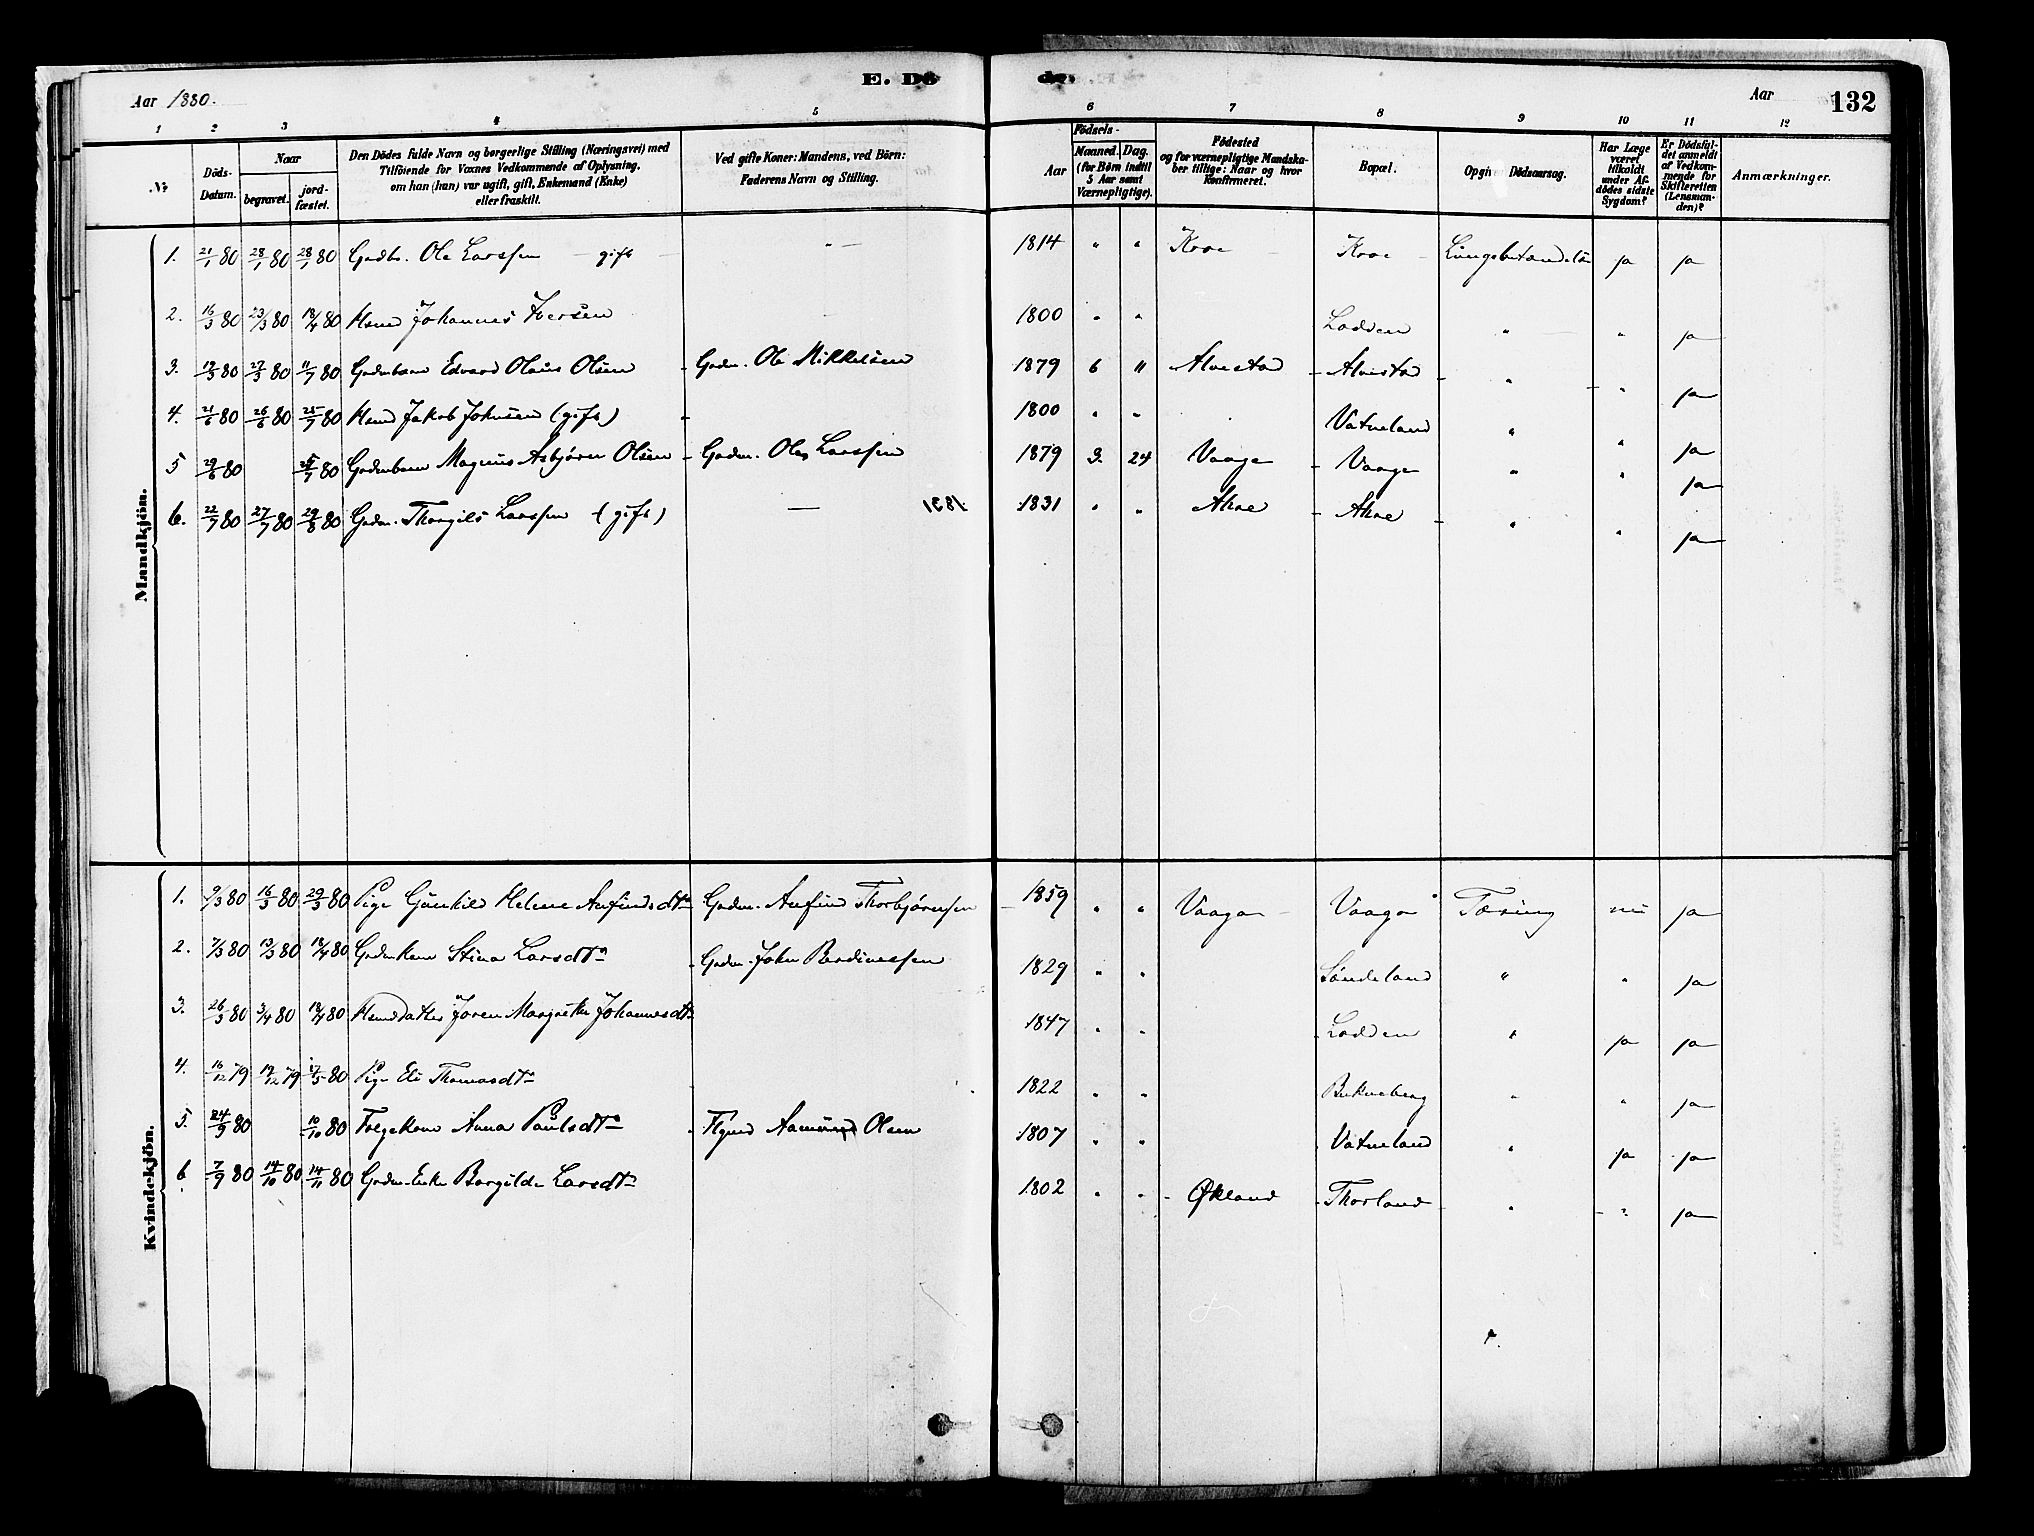 E. Dö de.
Aar 1880.
Aar
132
1 2 3 4 5 6 7 8 9 10 11 12
No
Döds-Datum.
Naar
begravet.
jord-fæstet.
Den Dödes fulde Navn og borgerlige Stilling (Næringsvei) med
Tilföiende for Voxnes Vedkommende af Oplysning,
om han (hun) var ugift, gift, Enkemand (Enke)
eller fraskilt.
Ved gifte Koner: Mandens, ved Börn:
Faderens Navn og Stilling.
Födsels-
Aar
Maaned. Dag.
(for Börn indtil
5 Aar samt
Værnepligtige).
Födested
og for værnepligtige Mandska-
ber tillige: Naar og hvor
Konfirmeret.
Bopæl.
Opgiven Dödsaarsag.
Har Læge
været
tilkaldt
under Af-
dödes sidste
Sygdom?
Er Dödsfal-
det anmeldt
af Vedkom-
mende for
Skifteretten
(Lensman-
den)?
Anmærkninger.
Mandkjön.
1. 21/1 80 28/1 80 28/1 80 Gadbr. Ole Larssen - gift - " — 1814 " " Kroe - Kroe - Lungebetændelse ja ja
2. 16/3 80 23/3 80 18/4 80 Hsmd Johannes Iversen 1800 " " Ladden " " ja
3. 19/3 80 27/3 80 11/7 80 Gadmbarn Edvard Olaus Olsen - Gadm. Ole Mikkelsen 1879 6 " Alvestad - Alvestad - " - " ja
4. 21/6 80 26/6 80 25/7 80 Hsmd Jakob Johnsen (gift) 1800 " " Vatneland " " ja
5 29/6 80 25/7 80 Gadmbarn Magnus Asbjörn Olsen - Gadm. Ole Larssen 1879 3. 24 Vaage - Vaage " " ja
6. 22/7 80 27/7 80 29/8 80 Gadm. Thorgils Larssen (gift) — 1831 " " Ahoe - Ahoe - " " ja
Kvindekjön.
1. 9/3 80 16/3 80 29/3 80 Pige Gunhild Helene Anfindsdtr Gadm. Anfind Thorbjörnsen - 1859 " " Vaage - Vaage Tæring nei ja
2. 7/3 80 13/3 80 18/4 80 Gadmkone Stina Larsdtr - Gadm. John Berdinessen 1829 " " Söndeland " " ja
3. 26/3 80 3/4 80 18/4 80 Hsmdsdatter Joren Margrethe Johannesdtr 1847 " " - Ladden " ja ja
4. 16/12 79 19/12 79 17/5 80 Pige Eli Thomasdtr 1822 " " Bukneberg " " ja
5. 24/9 80 10/10 80 Fölgekone Anna Paulsdtr - Flgmd Aamund Olsen 1807 " " Vatneland " ja ja
6. 7/9 80 14/10 80 14/11 80 Gadm. Enke Borgilde Larsdtr 1802 " " - Økland - Thorland - " - " ja